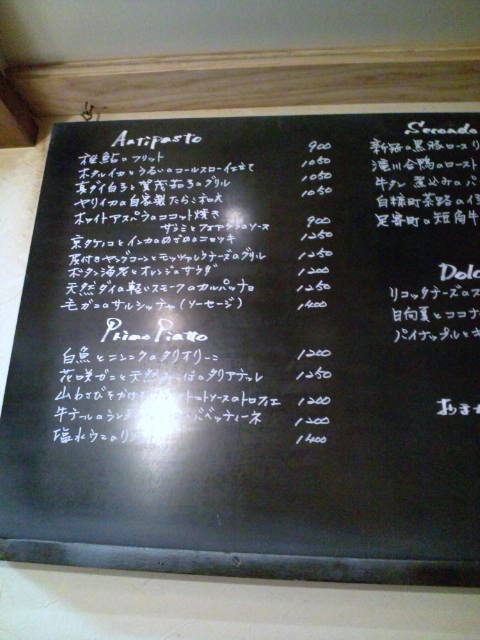 Antipasto
稚鮎のフリット 900
ホタルイカとうるいのコールスロー仕立て 1050
真ダイ白子と賀茂茄子のグリル 1050
ヤリイカの自家製たらこ和え 1050
ホワイトアスパラのココット焼き
サラミとフォアグラのソース 900
京タケノコとインカのめざめのニョッキ 1250
皮付きヤングコーンとモッツァレラチーズのグリル 1250
ボタン海老とオレンジのサラダ 1200
天然ダイの軽いスモークのカルパッチョ 1250
毛ガニのサルシッチャ(ソーセージ) 1400
Primo Piatto
白魚とニンニクのタリオリーニ 1200
花咲ガニと天然 のタリアテッレ 1250
山わさびを トソースのトロフィエ 1200
牛テールの バベッティーネ 1200
塩水ウニのリ 1400
Secondo
釧路の黒豚ロース
滝川合鴨のロースト
牛タン 煮込みの
白糠町茶路の
足寄町の短角牛
Dolc
リコッタチーズのス
日向夏とココナ
パイナップルと
おまか